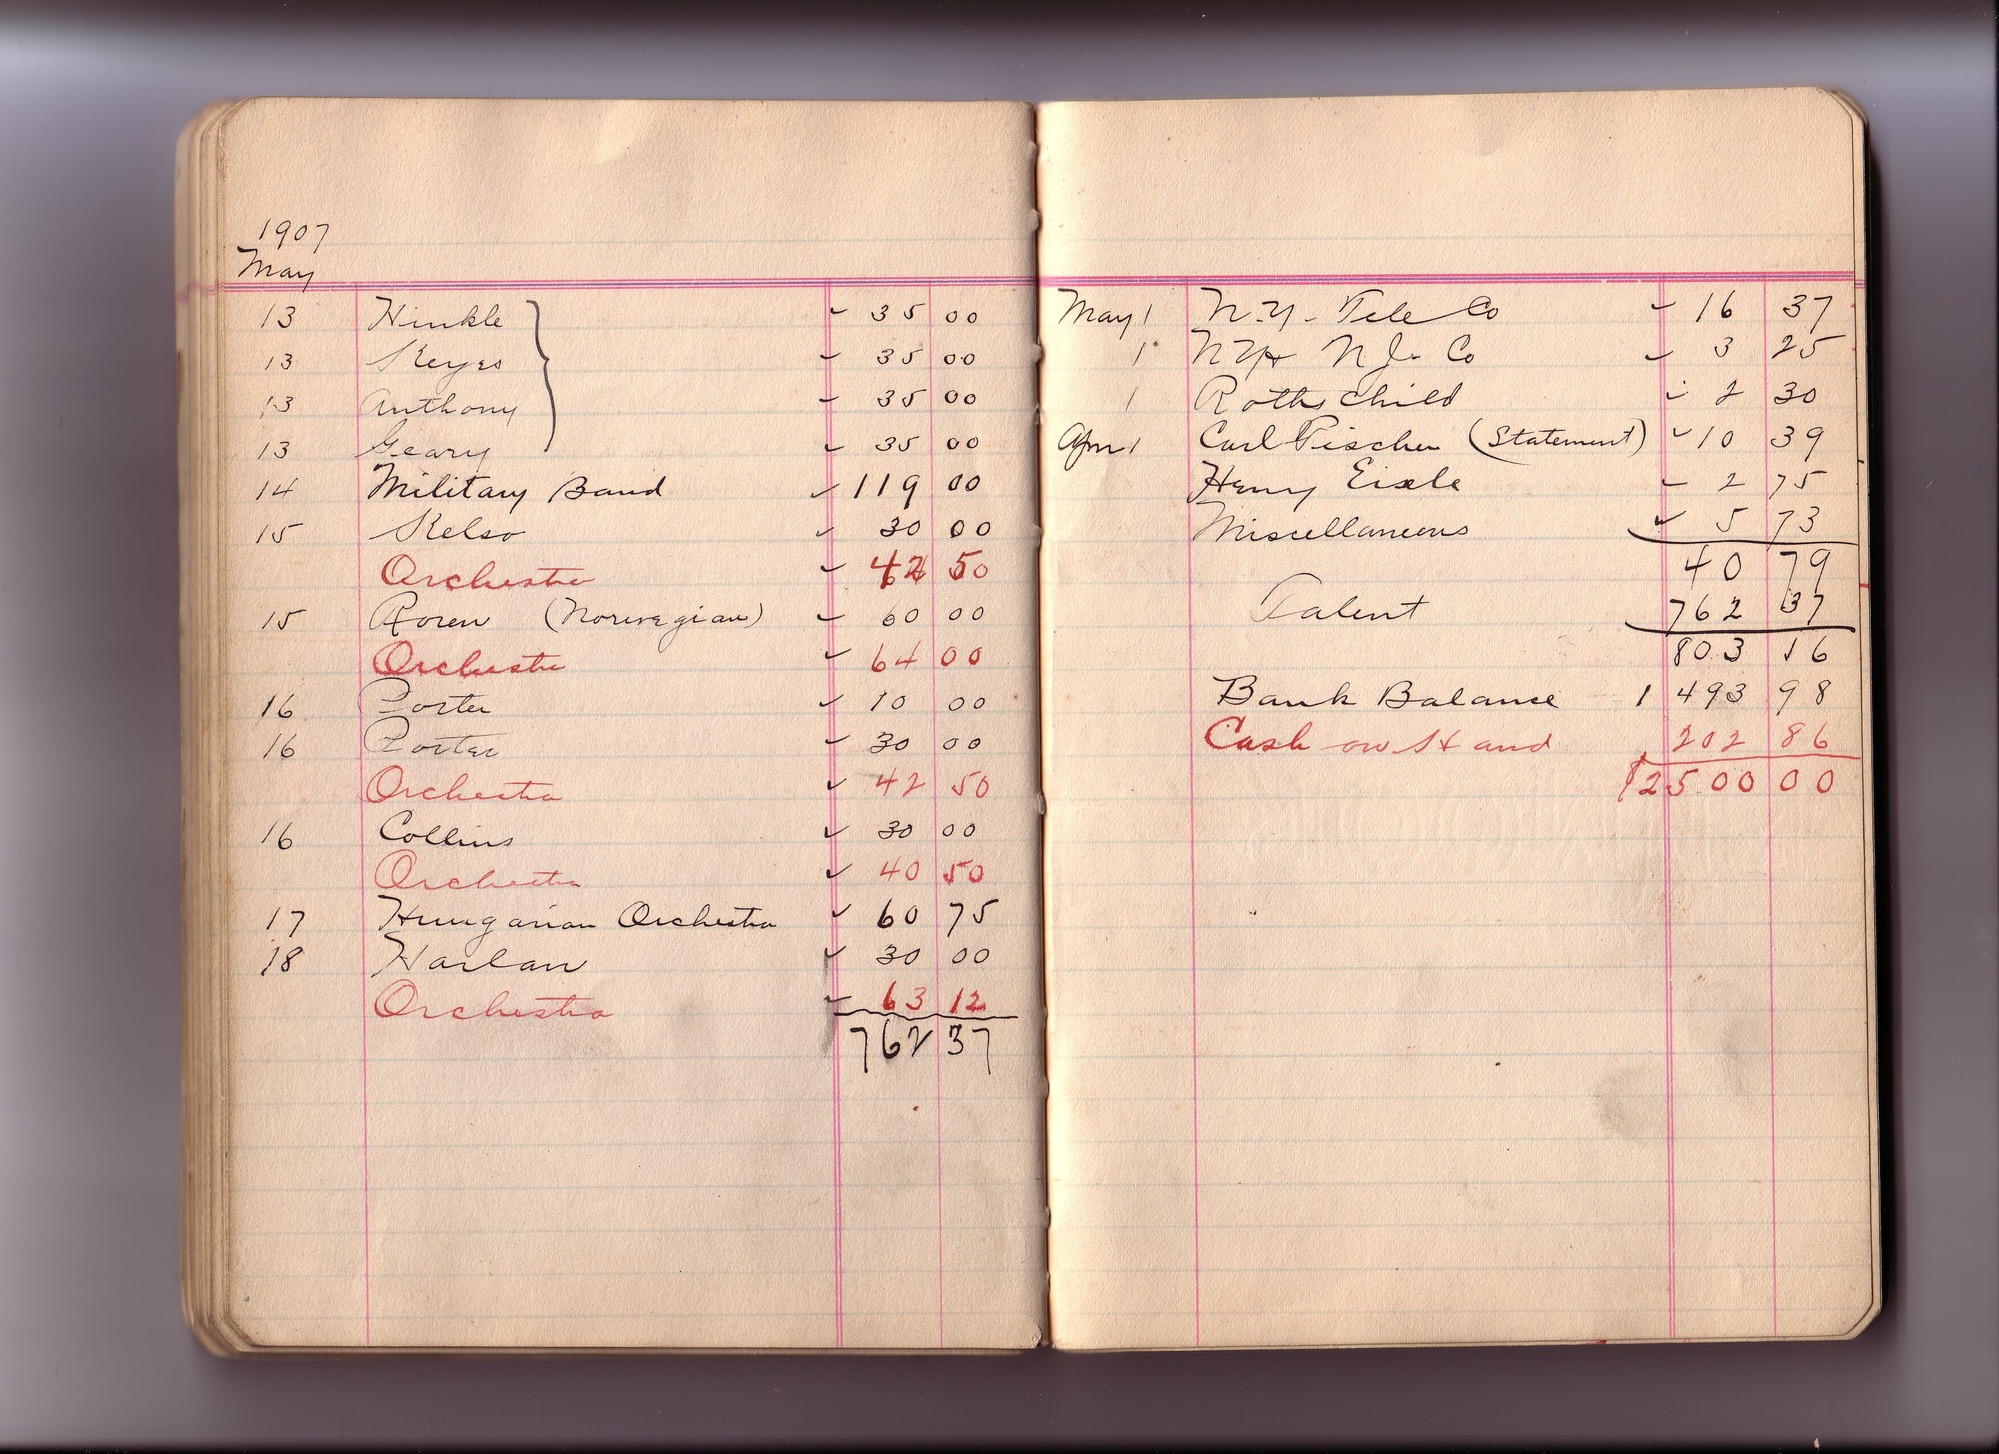 1907
May
13 Hinkle 35 00
13 Keyes 35 00
13 Anthony 35 00
13 Geary 35 00
14 Military Band 119 00
15 Kelso 30 00
Orchestra 42 50
15 Roren (Norwegian) 60 00
Orchestra 64 00
16 Porter 10 00
16 Porter 30 00
Orchestra 42 50
16 Collins 30 00
Orchestra 40 50
17 Hungarian Orchestra 60 75
18 Harlan 30 00
Orchestra 63 12
762 37
May 1 N.Y. Tele Co 16 37
1 N.Y. N.J. Co 3 25
1 Rothschild 2 30
Apr 1 Carl Fischer (Statement) 10 39
Henry Eisele 2 75
Miscellaneous 5 73
40 79
Talent 762 37
803 16
Bank Balance 1 493 98
Cash on Hand 202 86
$2500 00